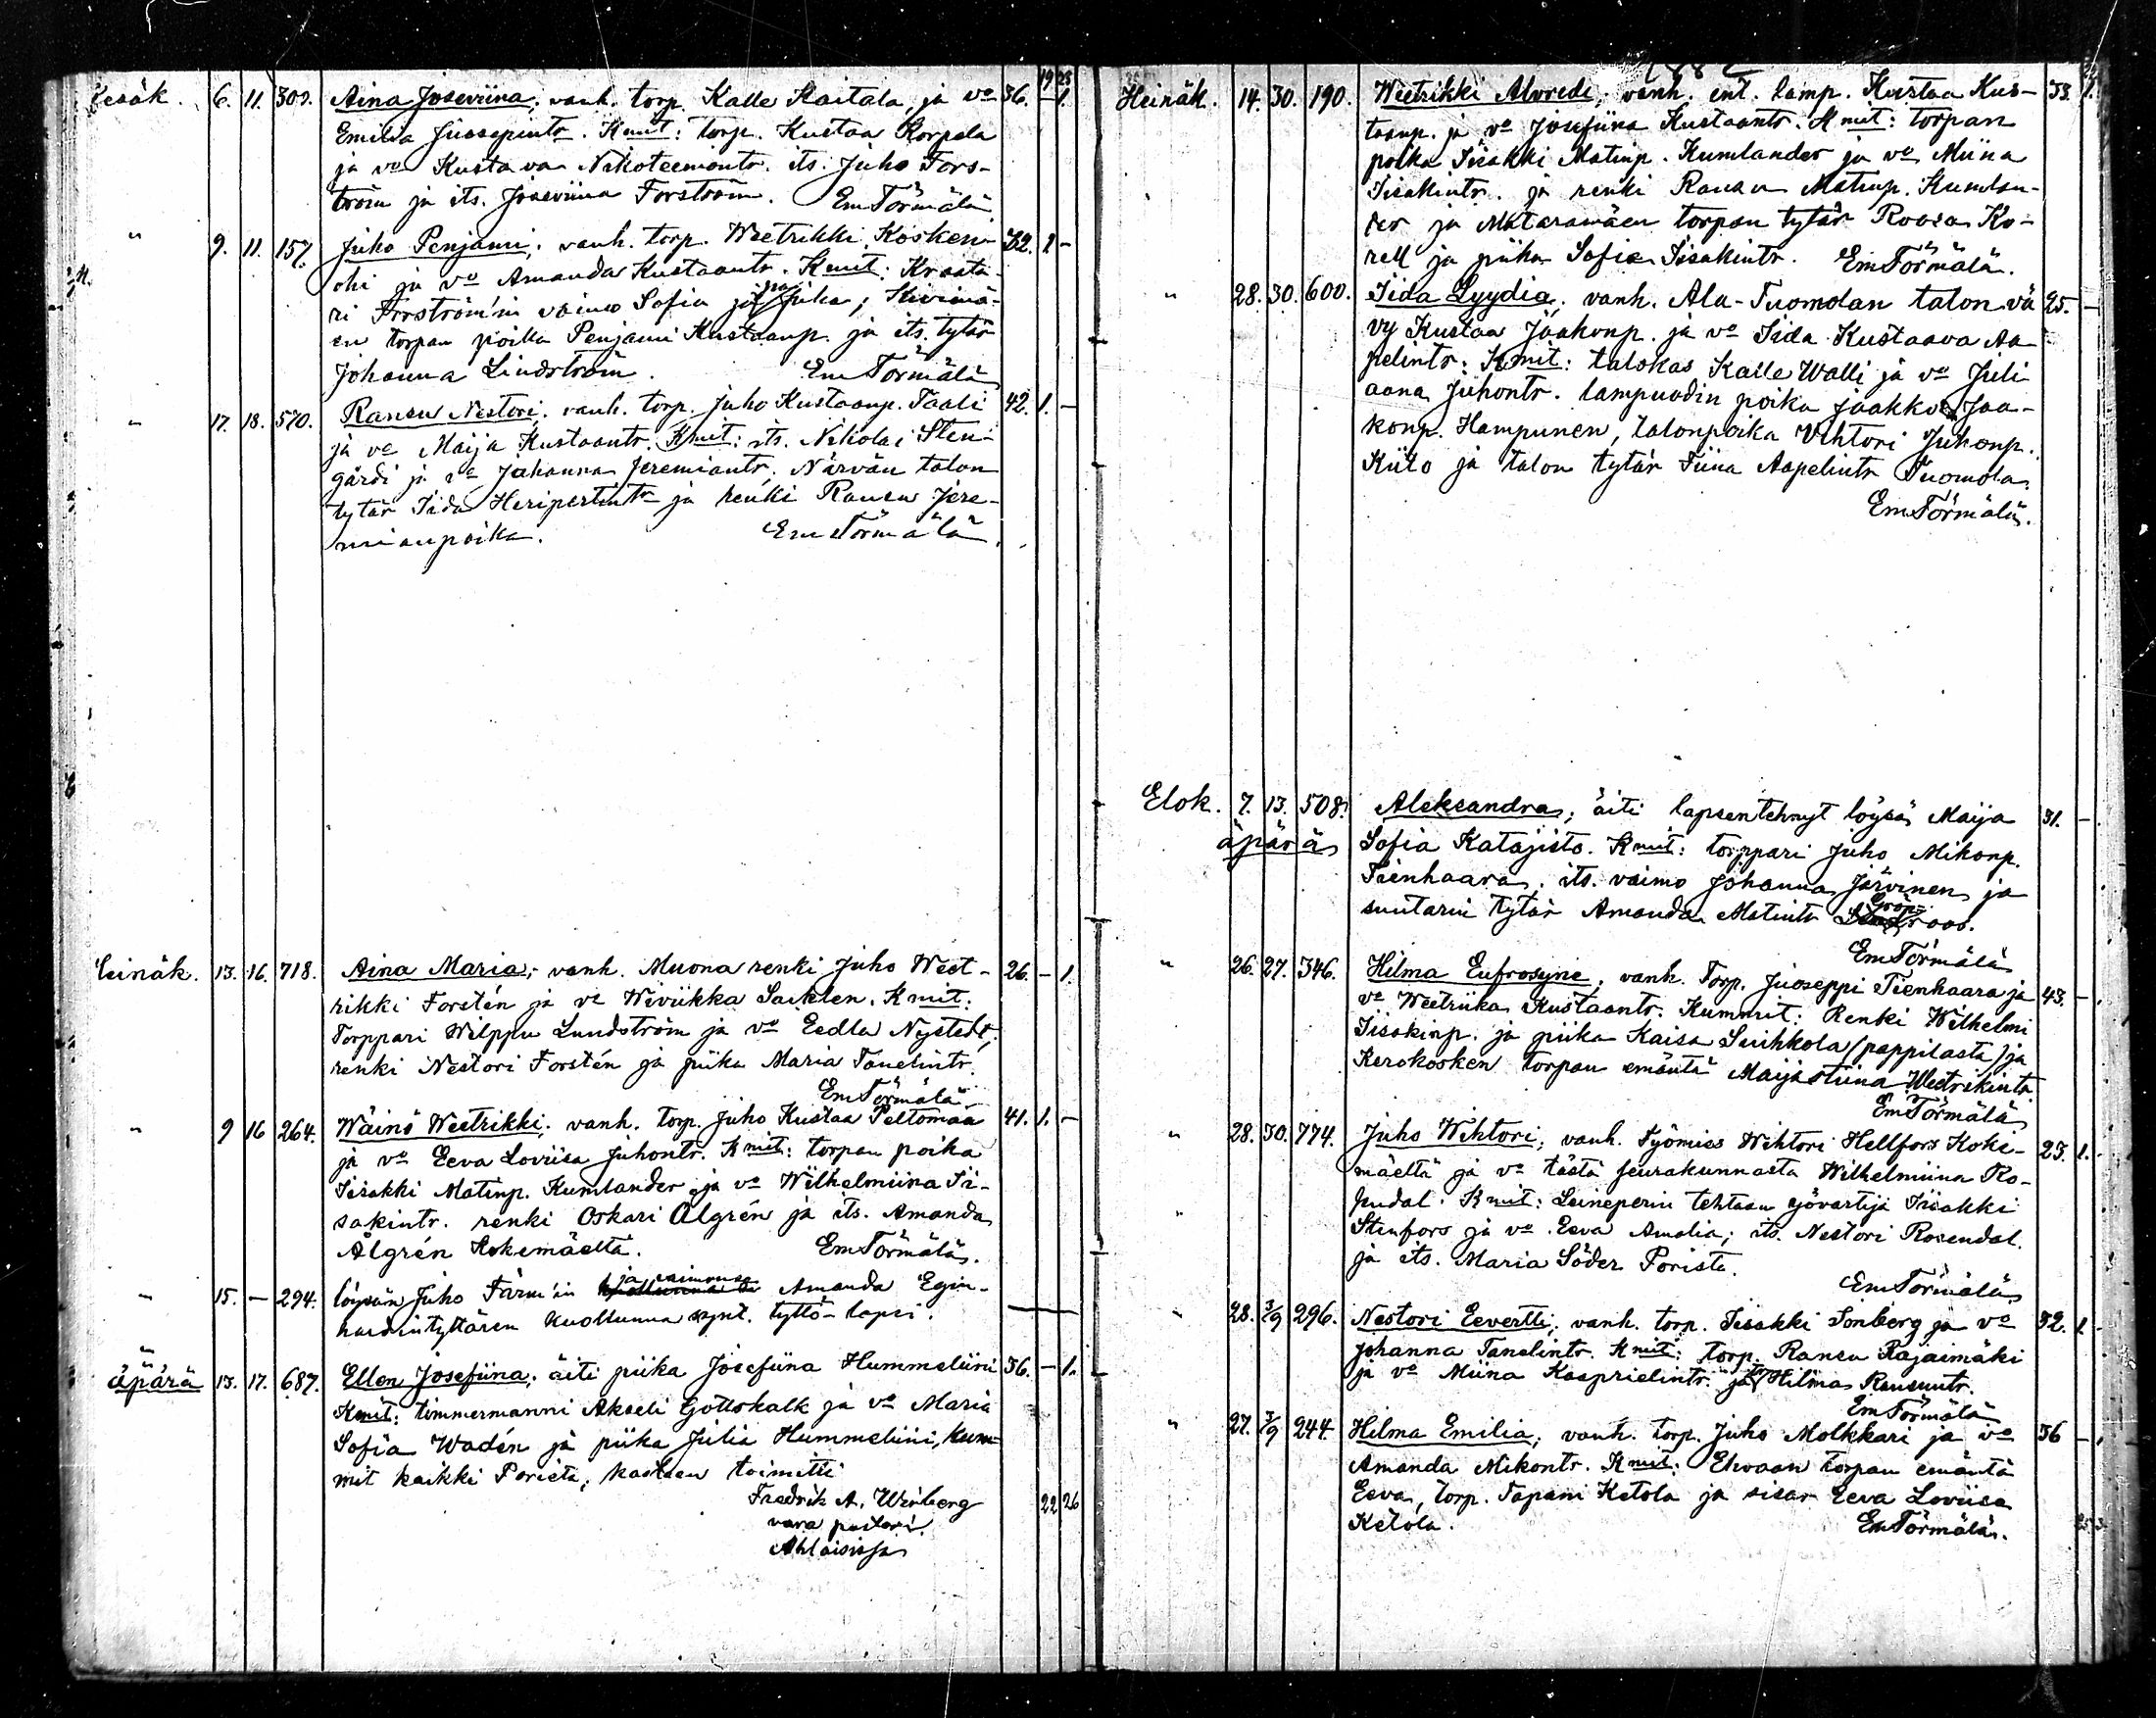 19 23
Kesäk. 6. 11. 300. Aina Joseviina; vanh. torp. Kalle Kaitala, ja vo 36. – 1.
Emilia Juosepintr. Kmit: torp. Kustaa Korpela
ja vo Kustava Nikoteemontr. its. Juho Fors-
tröm ja its. Joseviina Forström. Em Törmälä
" 9. 11. 157. Juho Penjami; vanh. torp. Weetrikki Kosken- 32. 1 –
ja vo Amanda Kustaantr. Kmit:
Forström'in vaimo Sofia ja
en torpan poika Penjami Kustaanp. ja its. tytär
Johanna Lindström. Em Törmälä
" 17. 18. 570. Ransu Nestori; vanh. torp. Juho Kustaanp. Taali 42. 1. –
ja vo Maija Kustaantr. Kmit: its. Nikolai Sten-
gårdi ja vo Johanna Jeremiantr. Närvän talon
tytär Iida Heripertintr ja renki Ransu Jere-
mianpoika. Em Törmälä.
Heinäk. 13. 16. 718. Aina Maria; vanh. Muona renki Juho Weet- 26. – 1.
rikki Forstén ja vo Wiviikka Saxlen. Kmit:
Torppari Wilppu Lundström ja vo Eedla Nystedt;
renki Nestori Forstén ja piika Maria Tanelintr.
Em Törmälä
" 9 16 264. Wäinö Weetrikki; vanh. torp. Juho Kustaa Peltomaa 41. 1. –
ja vo Eeva Loviisa Juhontr. Kmit: torpan poika
Iisakki Matinp. Kumlander ja vo Wilhelmiina Ii-
sakintr. renki Oskari Ålgrén ja its. Amanda
Ålgrén Kokemäeltä. Em Törmälä.
" 15. – 294. löysän Juho Färm'in ja vaimonsa Amanda Egin-
hardintyttären kuolluna synt. tyttö-lapsi.
"
äpärä 13. 17. 687. Ellen Josefiina; äiti piika Josefiina Hummeliini 36. – 1.
Kmit: timmermanni Akseli Gottskalk ja vo Maria
Sofia Wadén ja piika Julia Hummeliini, kum-
mit kaikki Porista; kasteen toimitti
Fredrik A. Winberg 22 26
vara pastori
Ahlaisissa
Heinäk. 14. 30. 190. Weetrikki Alvredi; vanh. ent. lamp. Kustaa Kus- 33. 1.
taanp. ja vo Josefiina Kustaantr. Kmit: torpan
poika Iisakki Matinp. Kumlander ja vo Miina
Iisakintr. ja renki Ransu Matinp. Kumlan-
der ja Mataramäen torpan tytär Roosa Ko-
rell ja piika Sofia Iisakintr. Em Törmälä.
" 28. 30. 600. Iida Lyydia; vanh. Ala-Tuomolan talon vä 25. –
vy Kustaa Jaakonp. ja vo Iida Kustaava Aa
pelintr: Kmit: talokas Kalle Walli ja vo Juli
aana Juhontr. lampuodin poika Jaakko Jaa-
konp. Hampunen, talonpoika Vihtori Juhonp.
Kiito ja talon tytär Tiina Aapelintr Tuomola.
Em Törmälä.
Elok. 7. 13. 508. Aleksandra; äiti lapsentehnyt löysä Maija 31. –
äpärä Sofia Katajisto. Kmit: torppari Juho Mikonp.
Tienhaara; its. vaimo Johanna Järvinen ja
suutarin tytär Amanda Matintr Grön-roos.
Em Törmälä
" 26. 27. 346. Hilma Eufrosyne; vanh. Torp. Juoseppi Tienhaara ja 43. –
vo Weetriika Kustaantr. Kummit: Renki Wilhelmi
Iisakinp. ja piika Kaisa Suihkola (pappilasta) ja
Kerokosken torpan emäntä Maijastiina Weetrikintr.
Em Törmälä
" 28. 30. 774. Juho Wihtori; vanh. Työmies Wihtori Hellfors Koke- 23. 1.
mäeltä ja vo tästä seurakunnasta Wilhelmiina Ro-
" Kmit: Leineperin tehtaan yövartija Iisakki
Stenfors ja vo Eeva Amalia; its. Nestori Rosendal.
ja its. Maria Söder Porista.
Em Törmälä
" 28. 3/9 296. Nestori Eevertti; vanh. torp. Iisakki Sonberg ja vo 32. 1.
Johanna Tanelintr. Kmit: torp. Ransu Rajaimäki
ja vo Miina Kaaprielintr. ja Hilma Ransuntr.
Em Törmälä
" 27. 3/9 244 Hilma Emilia; vanh. torp. Juho Molkkari ja vo 36 –
Amanda Mikontr. Kmit: Ehvaan torpan emäntä
Eeva, torp. Tapani Ketola ja sisar Eeva Loviisa
Ketola. Em Törmälä.